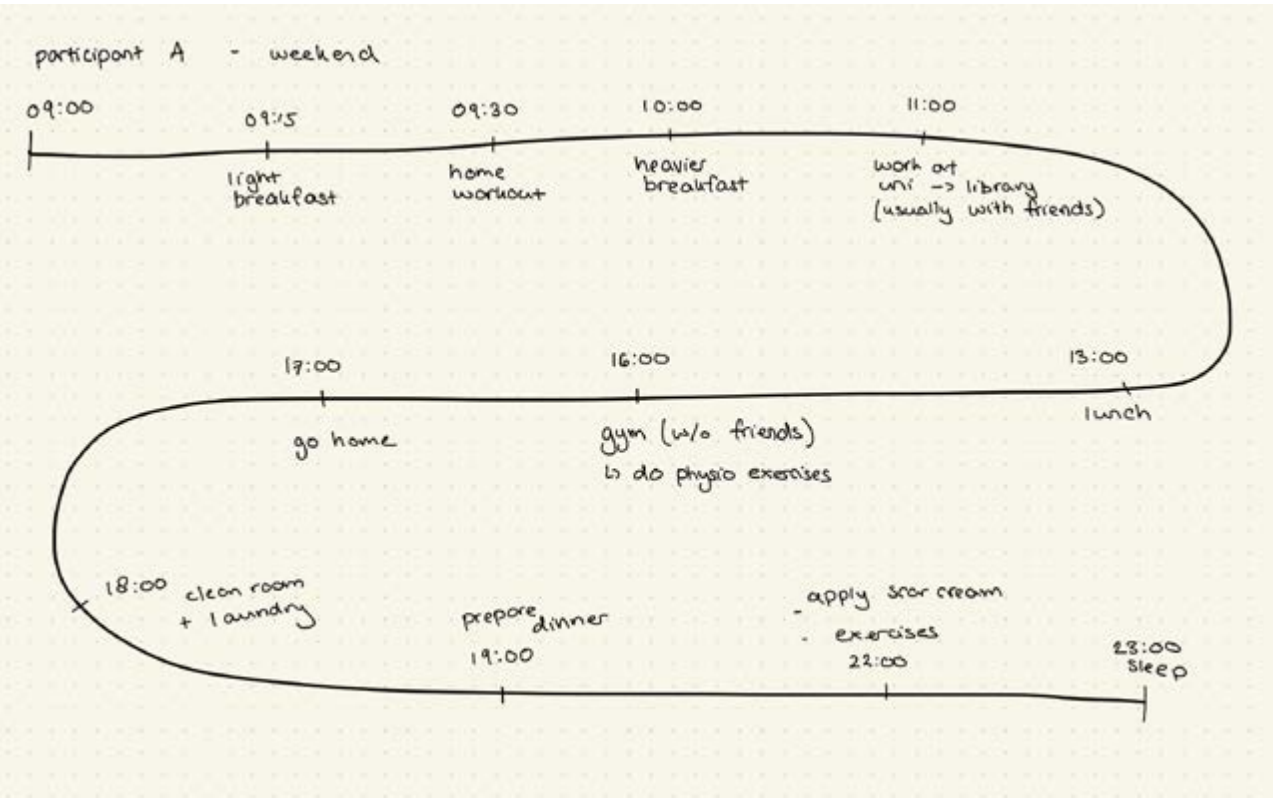 participant A - weekend
09:00
09:15
09:30
10:00
11:00
light
breakfast
home
workout
heavier
breakfast
work at
uni -> library
(usually with friends)
13:00
lunch
16:00
gym (w/o friends)
↳ do physio exercises
17:00
go home
18:00
clean room
+ laundry
prepare dinner
19:00
- apply scar cream
- exercises
22:00
23:00
sleep